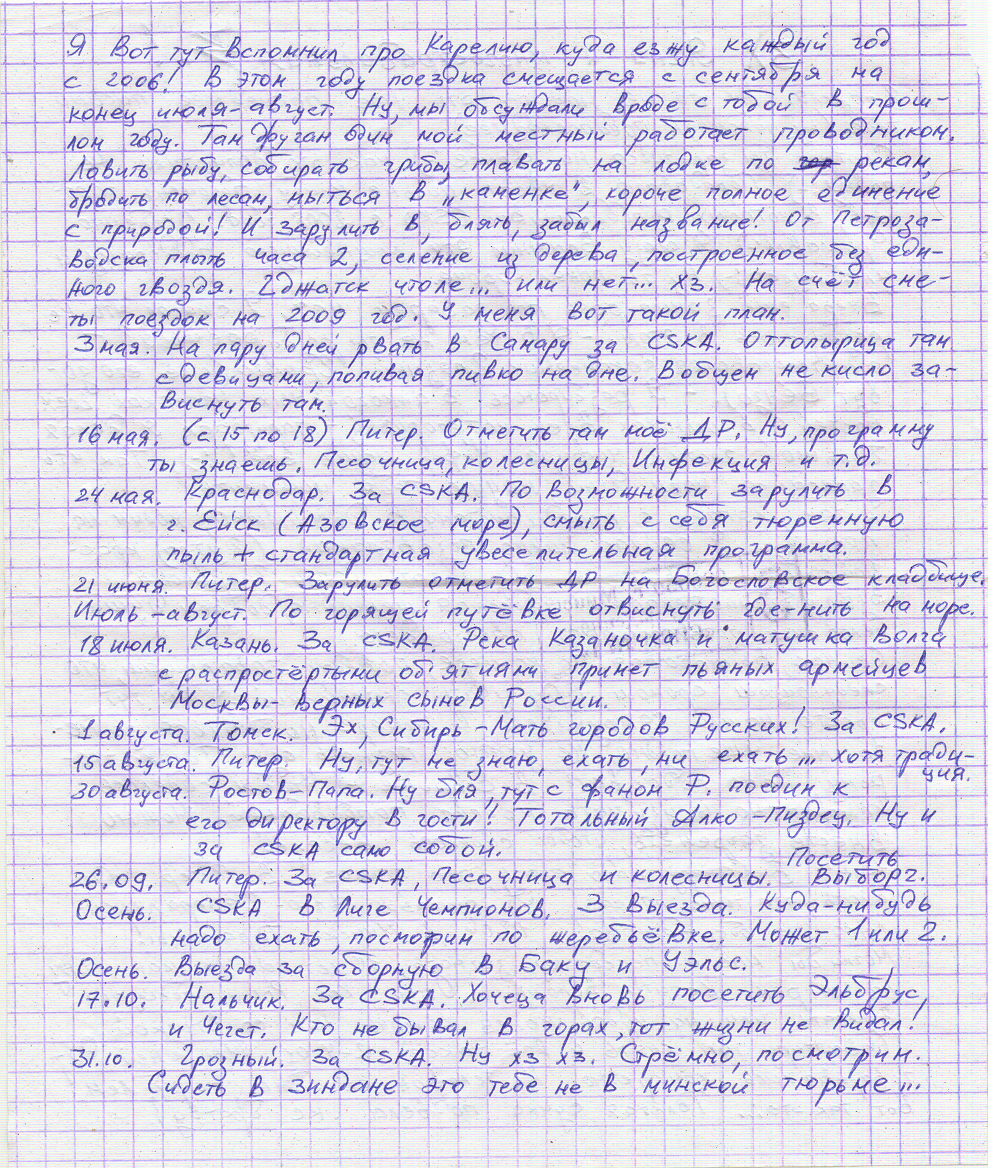 Я Вот тут вспомнил про Карелию, куда езжу каждый год
с 2006! В этом году поездка смещается с сентября на
конец июля-август. Ну, мы обсуждали вроде с тобой в прош-
лом году. Там друган один мой местный работает проводником.
Ловить рыбу, собирать грибы, плавать на лодке по рекам,
бродить по лесам, мыться в „каменке“, короче полное единение
с природой! И зарулить в, блять, забыл название! От Петроза-
водска плыть часа 2, селение из дерева, построенное без еди-
ного гвоздя. Гджатск чтоле... или нет... ХЗ. На счёт сме-
ты поездок на 2009 год. У меня вот такой план.
3 мая. На пару дней рвать в Самару за CSKA. Оттопырица там
с девицами, попивая пивко на дне. Вобщем не кисло за-
виснуть там.
16 мая. (с 15 по 18) Питер. Отметить там моё ДР. Ну, программу
ты знаешь. Песочница, колесницы, Инфекция и т.д.
24 мая. Краснодар. За CSKA. По возможности зарулить в
г. Ейск (Азовское море), смыть с себя тюремную
пыль + стандартная увеселительная программа.
21 июня. Питер. Зарулить отметить ДР на Богословское кладбище.
Июль-август. По горящей путёвке отвиснуть где-нить на море.
18 июля. Казань. За CSKA. Река Казаночка и матушка Волга
с распростёртыми объятиями примет пьяных армейцев
Москвы-верных сынов России.
1 августа. Томск. Эх, Сибирь-Мать городов Русских! За CSKA.
15 августа. Питер. Ну, тут не знаю, ехать, ни ехать... хотя тради-
ция.
30 августа. Ростов-Папа. Ну бля, тут с фаном Р. поедим к
его директору в гости! Тотальный Алко-Пиздец. Ну и
за CSKA само собой.
Посетить
26.09. Питер. За CSKA, Песочница и колесницы. Выборг.
Осень. CSKA в Лиге Чемпионов. 3 выезда. Куда-нибудь
надо ехать, посмотрим по жеребьёвке. Может 1 или 2.
Осень. Выезда за сборную в Баку и Уэльс.
17.10. Нальчик. За CSKA. Хочеца вновь посетить Эльбрус,
и Чегет. Кто не бывал в горах, тот жизни не видал!
31.10. Грозный. За CSKA. Ну хз хз. Стрёмно, посмотрим.
Сидеть в зиндане это тебе не в минской тюрьме...